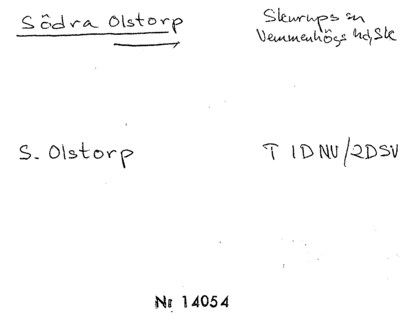 Södra Olstorp
Skurups sn
Vemmenhögs hd, Sk
S. Olstorp
T 1D NV/2DSV
Nr 14054